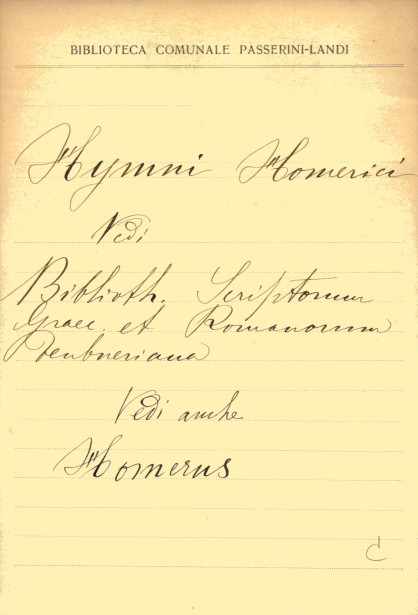 BIBLIOTECA COMUNALE PASSERINI-LANDI
Hymni Homerici
Vedi
Biblioth. Scriptorum
Graec. et Romanorum
Teubneriana
Vedi anche
Homerus
C